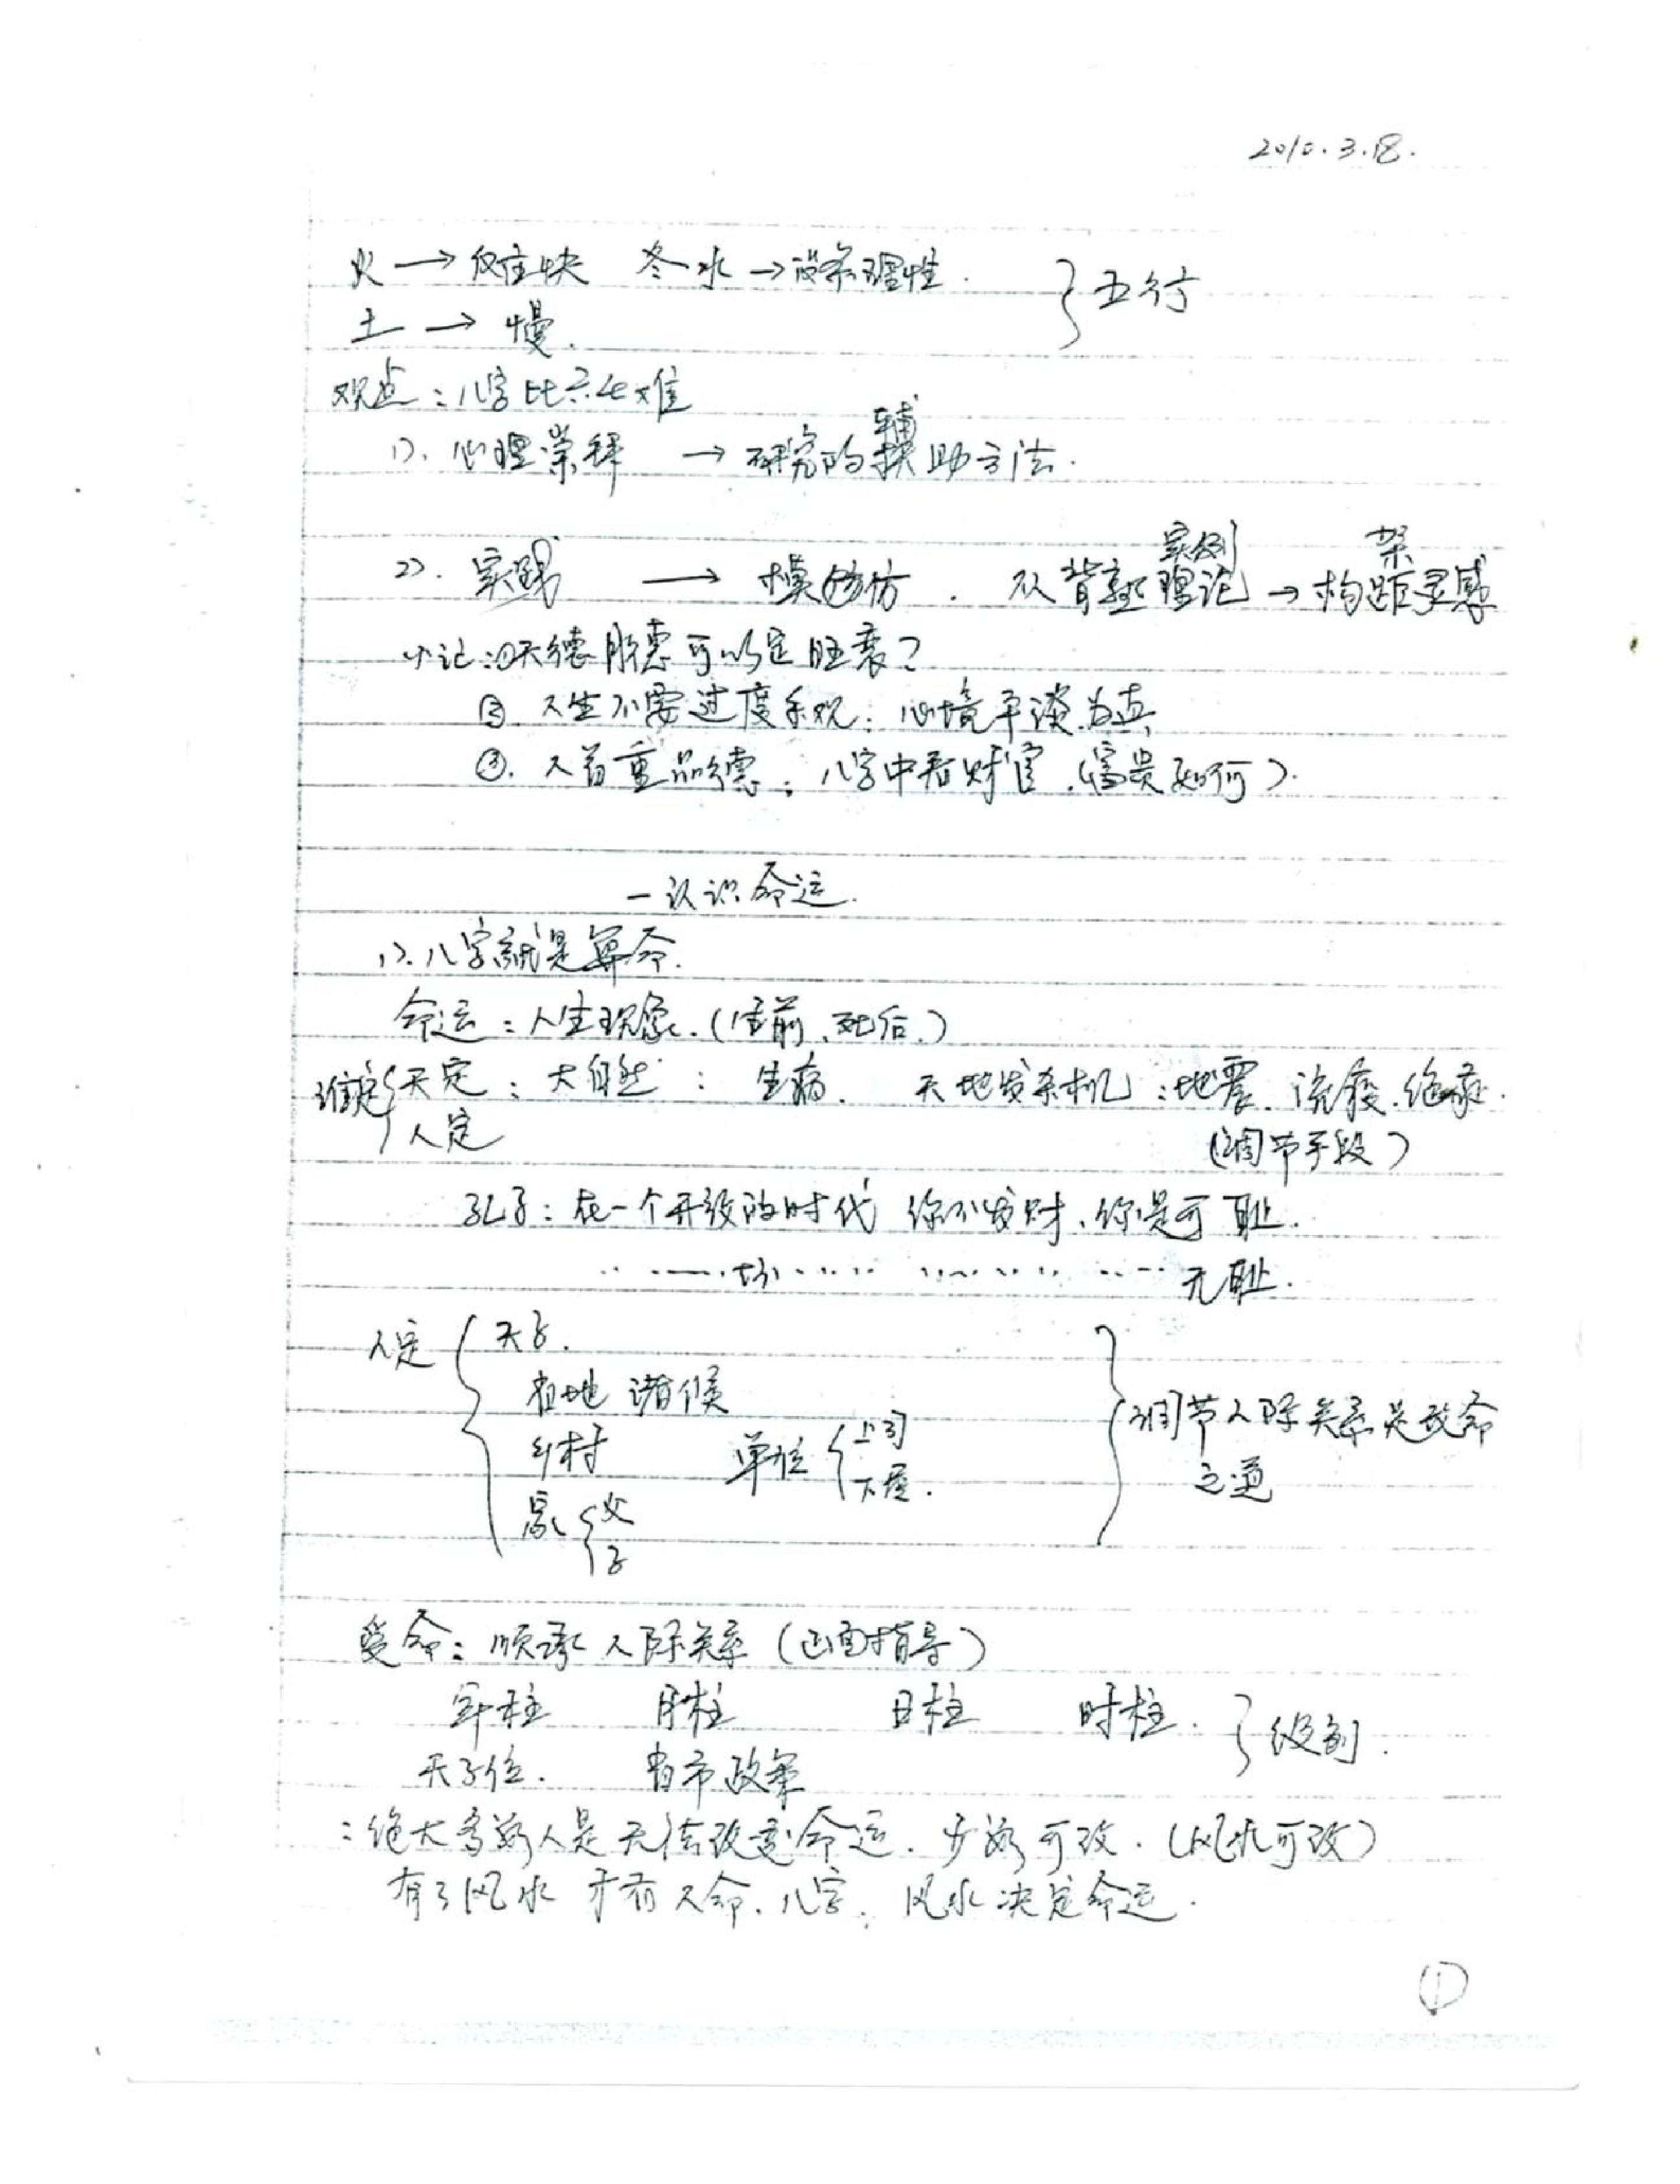 2010.3.18.
火 → 反应快 冬水 → 没条理性. } 五行
土 → 慢.
观点：八字比六爻难
1). 心理崇拜 → 研究的辅助方法.
2). 实践 → 模仿. 从背熟理论实例 → 构架灵感
小记：①天德月德可以定旺衰？
②. 人生不要过度乐观；心境平淡为真
③. 人首重品德；八字中看财官.(富贵如何).
一认识命运.
1). 八字就是算命.
命运：人生现象.(生前、死后.)
谁定 { 天定：大自然：生病. 天地发杀机：地震. 流疫. 绝症.
人定 (调节手段)
孔子：在一个开放的时代 你不发财、你是可耻.
无耻.
人定 { 天子.
省地 诸候
乡村 单位 { 上司 下属. } 调节人际关系是改命之道
家 { 父 子
受命：顺承人际关系 (正确指导)
年柱 月柱 日柱 时柱. } 级别.
天子位. 省市政策
：绝大多数人是无法改变命运. 少数可改. (风水可改)
有了风水 才有人命、八字；风水决定命运.
①